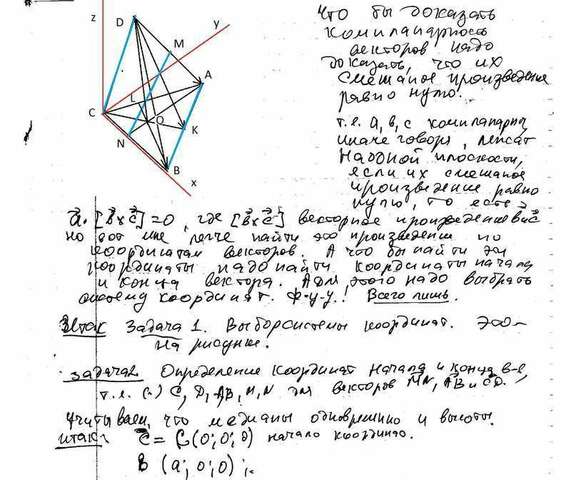 z
D
y
M
A
L
C
O
K
N
B
x
Что бы доказать
компланарность
векторов надо
доказать, что их
смешаное произведение
равно нулю.
т.е. a, b, c компланарны,
иначе говоря, лежат
на одной плоскости,
если их смешаное
произведение равно
нулю, то есть
a⃗·[b⃗×c⃗]=0, где [b⃗×c⃗] векторное произведение
но вот мне легче найти это произведение по
координатам векторов. А что бы найти эти
координаты надо найти координаты начала
и конца вектора. А для этого надо выбрать
систему координат. Ф-у-у! Всего лишь.
Итак Задача 1. Выбор системы координат. Это
на рисунке.
задача 2. Определение координат начала и конца в-в,
т.е. C, D, A, B, M, N для векторов MN, AB и CD.
Учитываем, что медианы одновременно и высоты.
итак: C = C (0; 0; 0) начало координ
B (a; 0; 0);